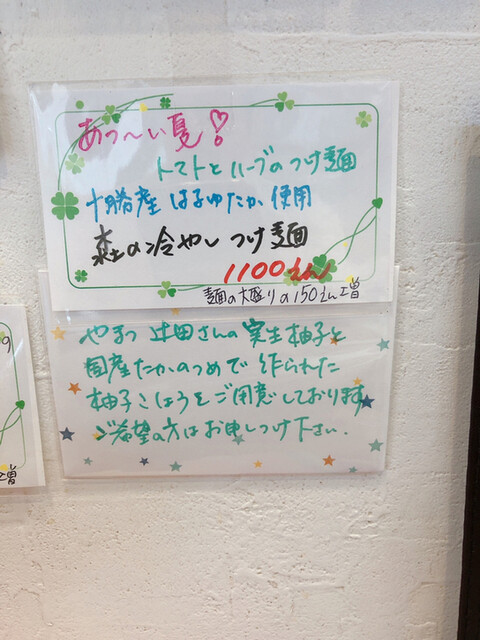 あつ〜い夏!
トマトとハーブのつけ麺
十勝産 はるゆたか使用
森の冷やしつけ麺
1100えん
麺の大盛りの150えん増
やまつ辻田さんの実生柚子と
国産たかのつめで作られた
柚子こしょうをご用意しております
ご希望の方はお申しつけ下さい.
の
増